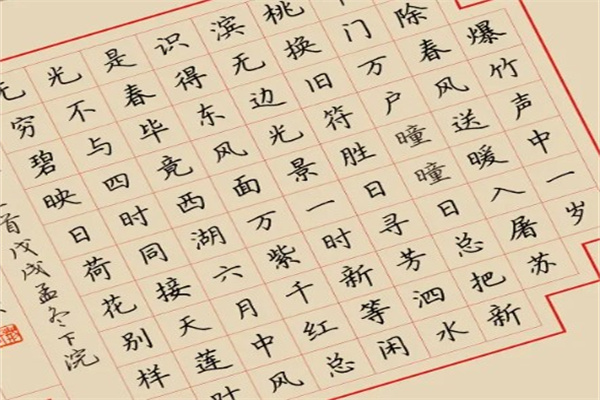 爆竹声中一岁
除春风送暖入屠苏
门万户曈曈日总把新
桃换旧符胜日寻芳泗水
滨无边光景一时新等闲
识得东风面万紫千红总
是春毕竟西湖六月中风
光不与四时同接天莲叶
无穷碧映日荷花别样
首戊戌孟冬下浣